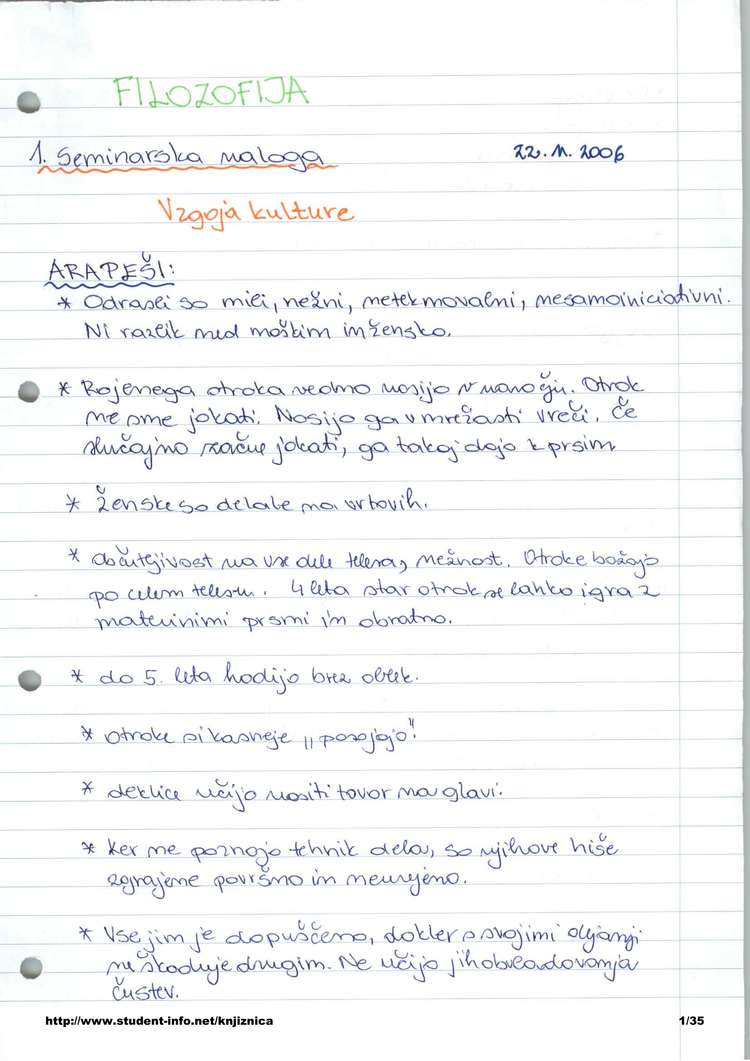 FILOZOFIJA
1. Seminarska naloga 22. 11. 2006
Vzgoja kulture
ARAPEŠI:
* Odrasli so mili, nežni, netekmovalni, nesamoiniciativni.
Ni razlik med moškim in žensko.
* Rojenega otroka vedno nosijo v naročju. Otrok
ne sme jokati. Nosijo ga v mrežasti vreči. Če
slučajno začne jokati, ga takoj dajo k prsim
* Ženske so delale na vrtovih.
* občutljivost na vse dele telesa, nežnost. Otroke božajo
po celem telesu. 4 leta star otrok se lahko igra z
materinimi prsmi in obratno.
* do 5. leta hodijo brez oblek.
* otroke si kasneje "posojajo".
* deklice učijo nositi tovor na glavi.
* Ker ne poznajo tehnik dela, so njihove hiše
zgrajene površno in neurejeno.
* Vse jim je dopuščeno, dokler s svojimi dejanji
ne škoduje drugim. Ne učijo jih obvladovanja
čustev.
http://www.student-info.net/knjiznica 1/35